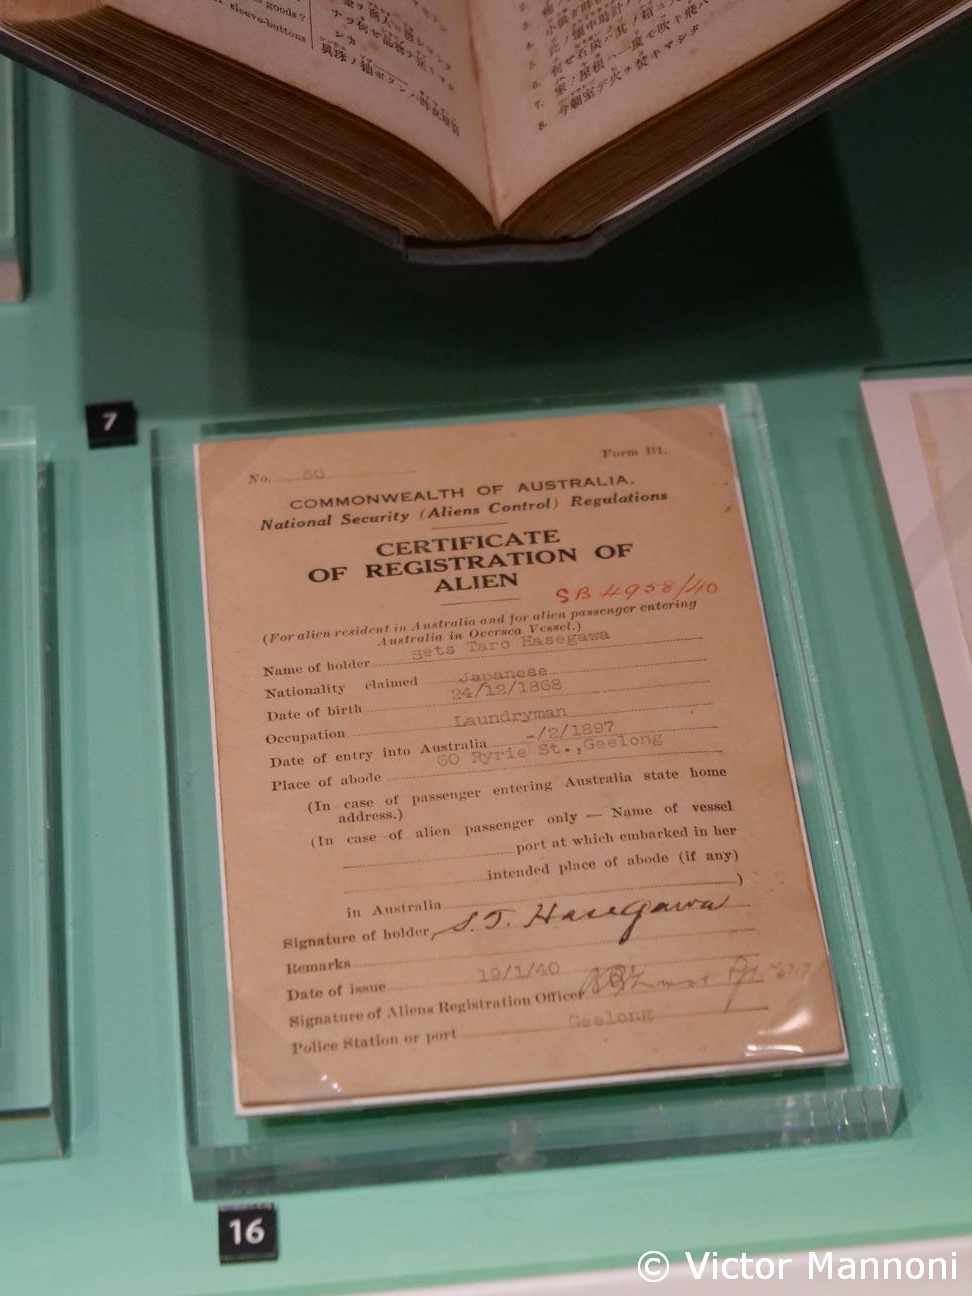 goods?
sleeve-buttons
2.
3.
4.
5.
6.
7.
8. 今朝室デ火ヲ焚キマシタ
7
No. 50
Form B1.
COMMONWEALTH OF AUSTRALIA.
National Security (Aliens Control) Regulations
CERTIFICATE
OF REGISTRATION OF
ALIEN
SB 4958/40
(For alien resident in Australia and for alien passenger entering
Australia in Oversea Vessel.)
Name of holder Sets Taro Hasegawa
Nationality claimed Japanese
Date of birth 24/12/1868
Occupation Laundryman
Date of entry into Australia -/2/1897
Place of abode 60 Ryrie St.,Geelong
(In case of passenger entering Australia state home
address.)
(In case of alien passenger only — Name of vessel
port at which embarked in her
intended place of abode (if any)
in Australia )
Signature of holder S. T. Hasegawa
Remarks
Date of issue 19/1/40
Signature of Aliens Registration Officer
Police Station or port Geelong
16
© Victor Mannoni